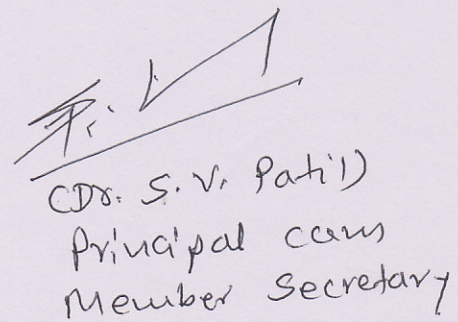 (Dr. S. V. Patil)
Principal cum
Member Secretary